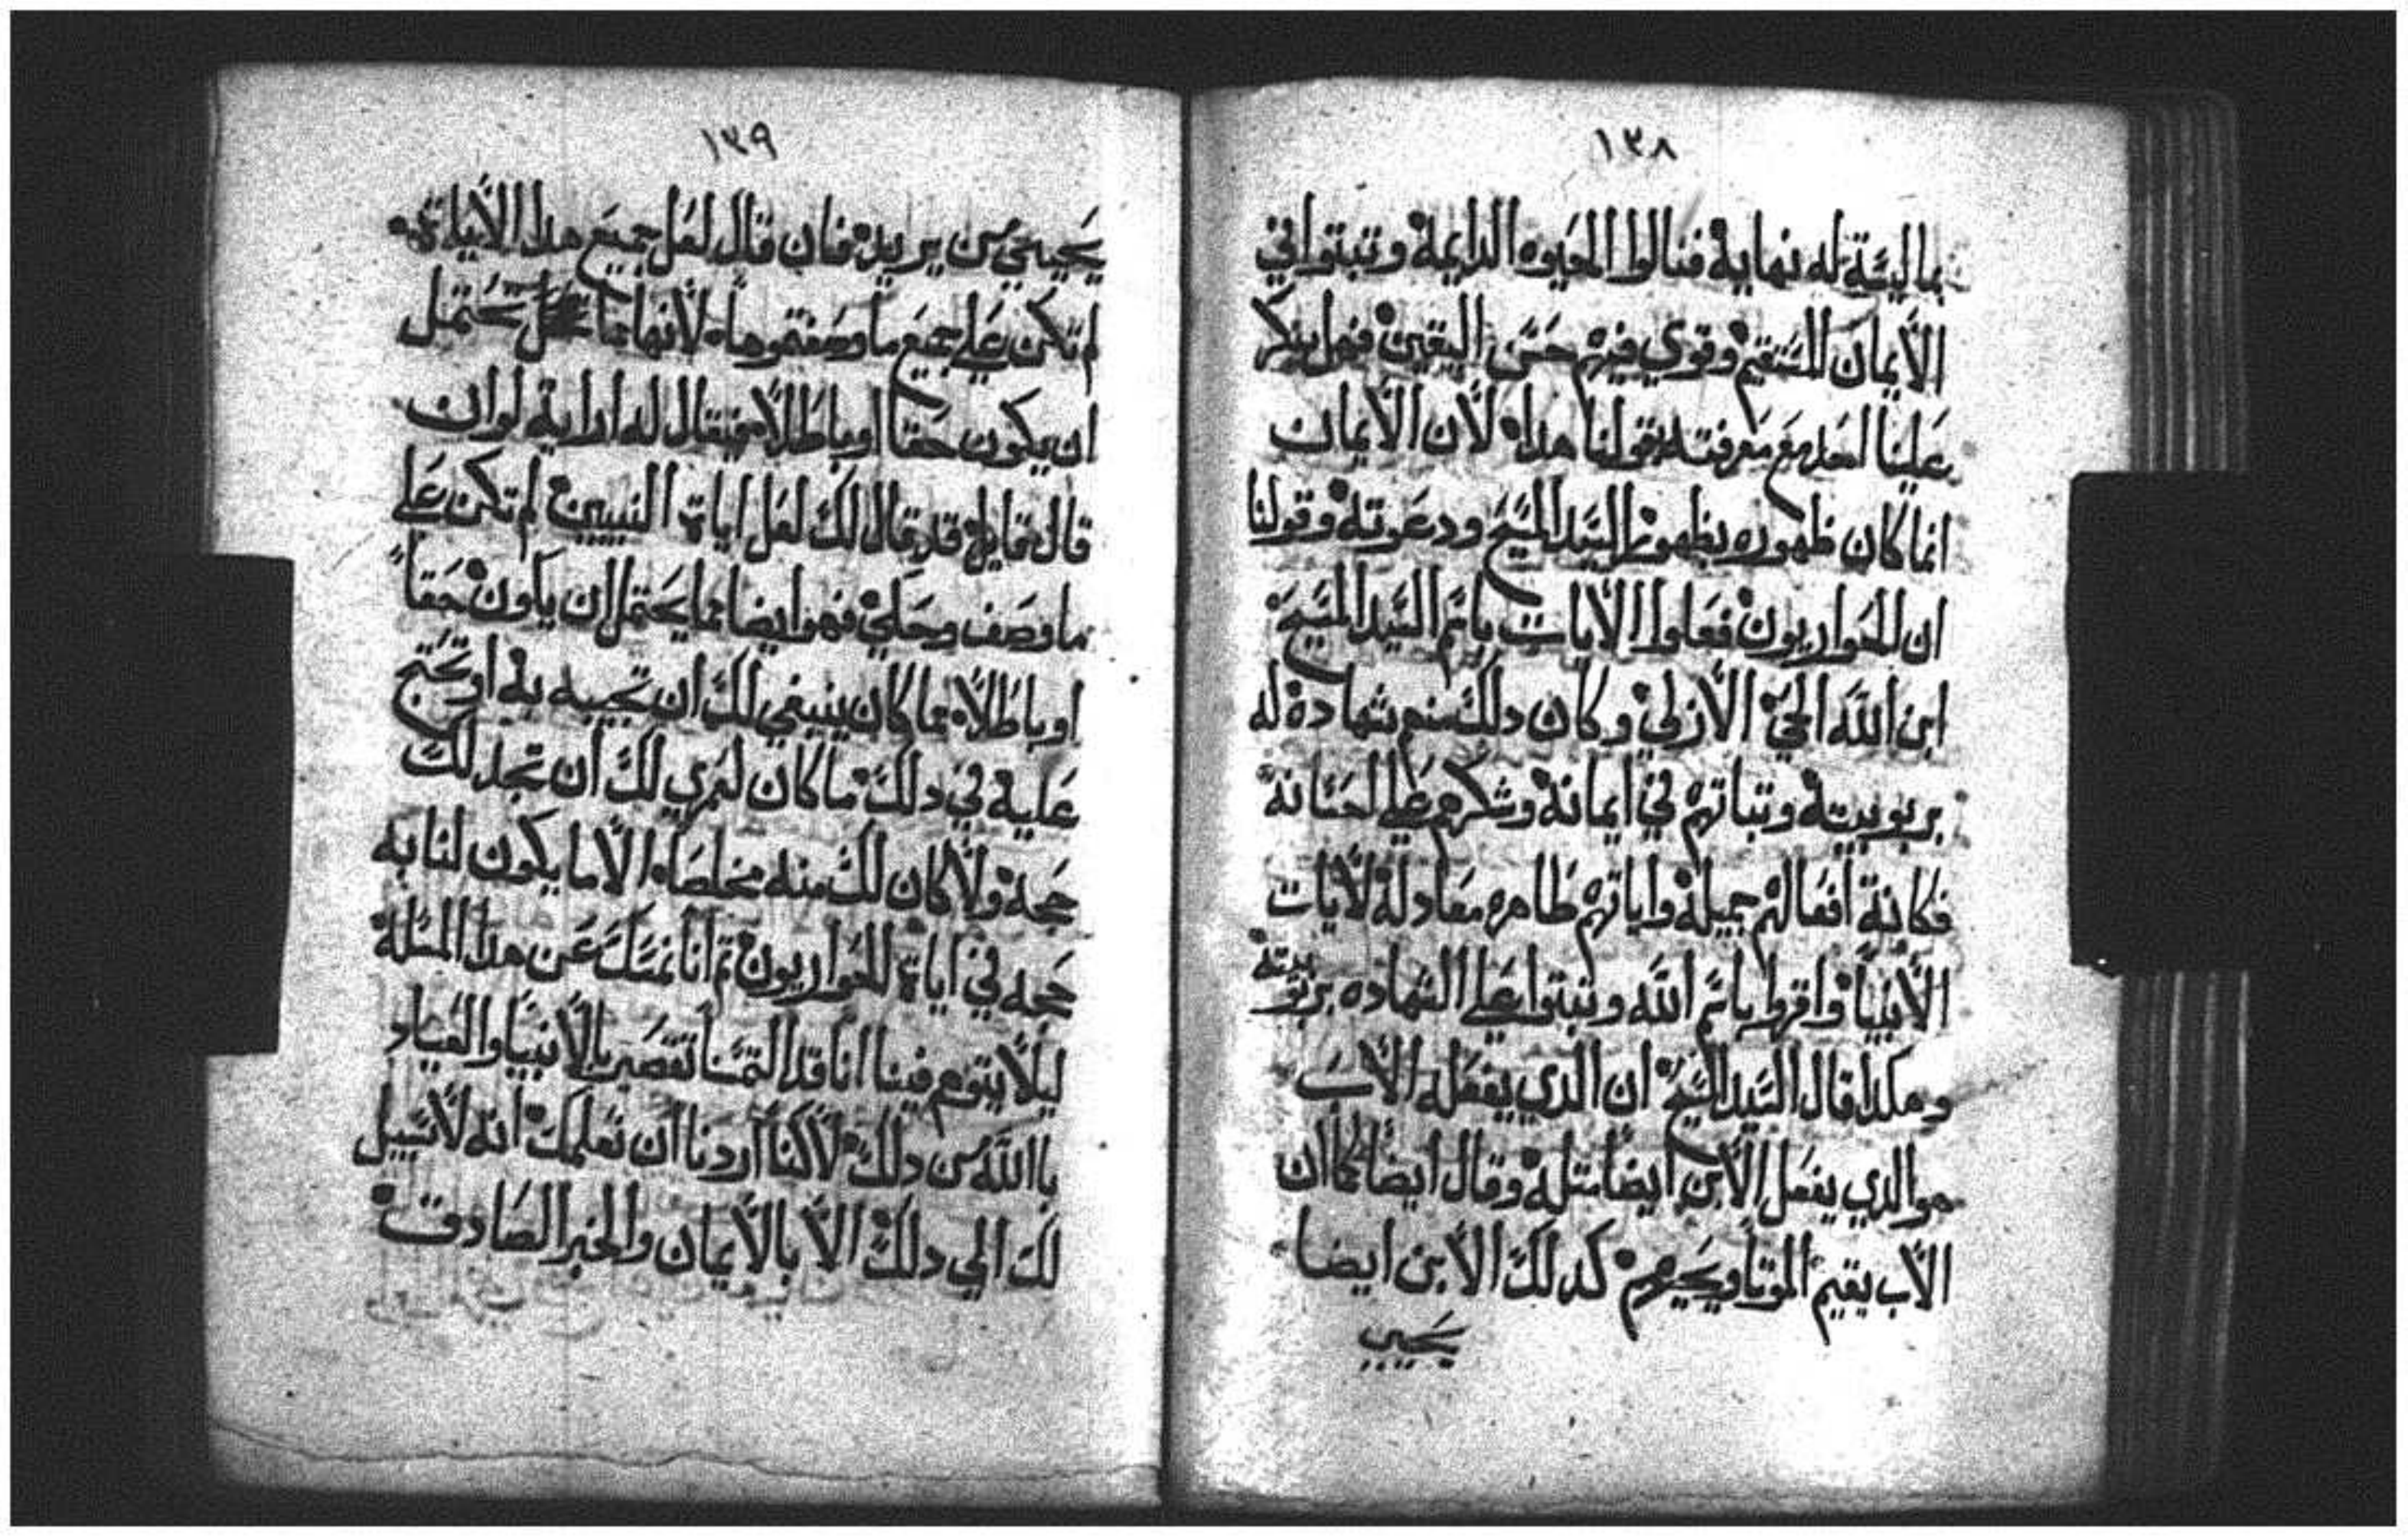 ١٣٨
بما ليسة له نهاية فنالوا الحيوه الدايمة وتبتوا في
الأيمان المستقيم وقوي فيهم حسن اليقين فهل ينكر
علينا احد مع معرفته بقولنا هدا لأن الأيمان
انما كان ظهوره بظهور السيد المسيح ودعوته وقولنا
ان الحواريون فعلوا الأيات باسم السيد المسيح
ابن الله الحي الأزلي وكان دلك منهم شهادة له
بربوبيته وتباتهم في ايمانه وشكرهم علي احسانه
فكانة أفعالهم جميلة واياتهم ظاهره معادلة لأيات
الأنبيا واقروا باسم الله وتبتوا علي الشهاده بربوبيته
وهكدا قال السيد المسيح ان الدي يفعله الأب
هو الدي يفعل الأبن أيضا متله وقال ايضا كما ان
الأب يقيم الموتا ويحييهم كدلك الأبن ايضا
يحيي
١٣٩
يحيي من يريد فان قال لعل جميع هدا الأياة
لم تكن علي جميع ما وصفتموها لأنها مما يحتمل
ان يكون حقا او باطلا فيقال له ارايه لو ان
قال قايل قد قال لك لعل اياة النبيين لم تكن علي
ما وصف وحكي فهو ايضا مما يحتمل ان ياون حقا
او باطلا مما كان ينبغي لك ان تجيبه به او تحتج
عليه في دلك ما كان لعمري لك ان تجد لك
حجة ولا كان لك منه مخلصا الا ما يكون لنا به
حجه في اياة الحواريون تم انا نمسك عن هدا المسلة
ليلا يتوهم فينا انا قد التمسنا تقصير بالأنبيا والعياد
باالله من دلك لأكننا أردنا أن نعلمك أنه لأ سبيل
لك الي دلك الأ بالأيمان والخبر الصادق